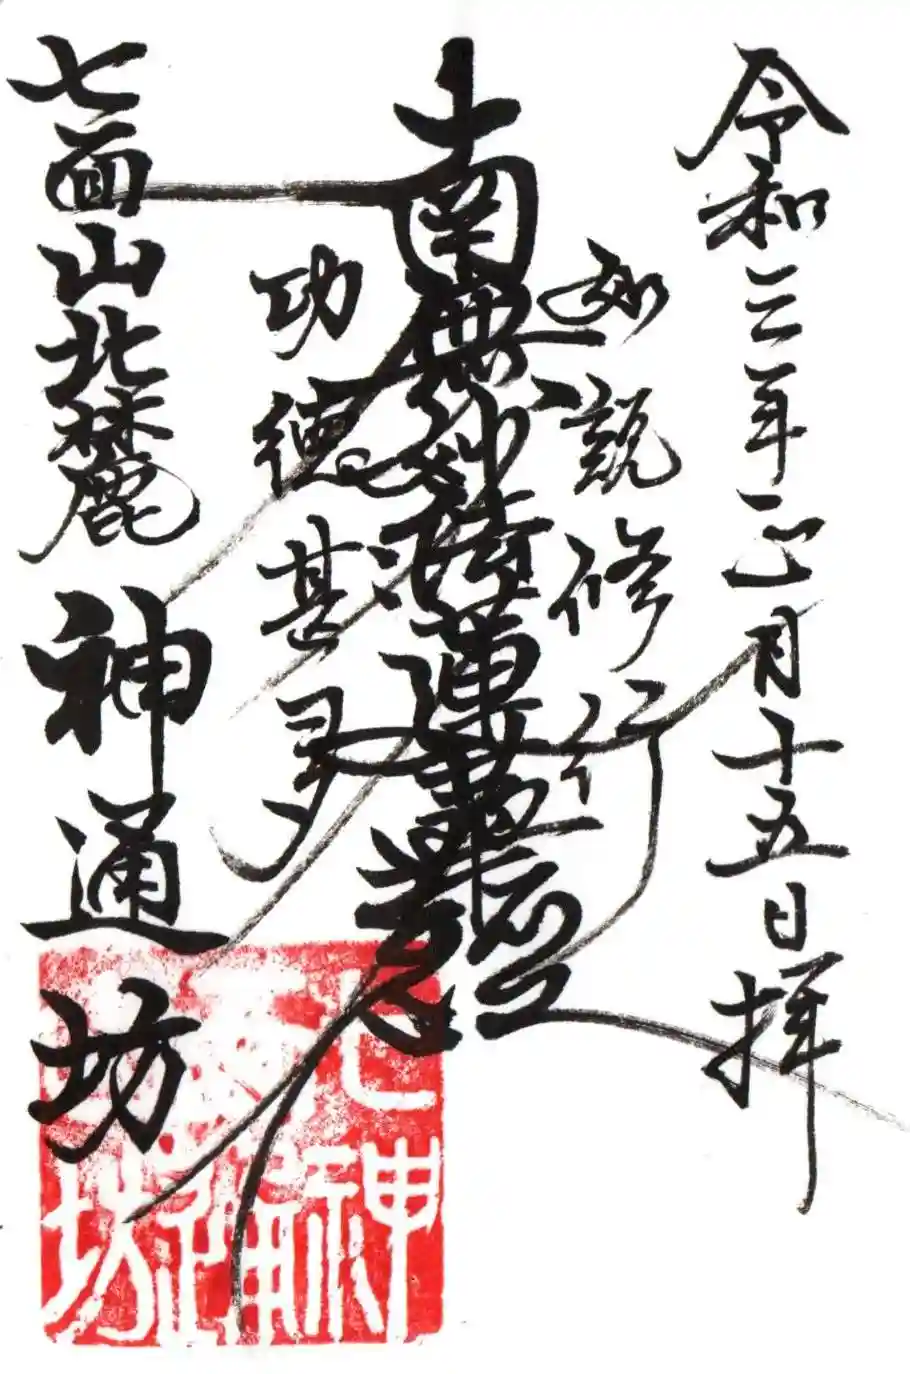 令和三年正月十五日拝
如説修行
南無妙法蓮華経
功徳甚多
七面山北麓 神通坊
神通坊